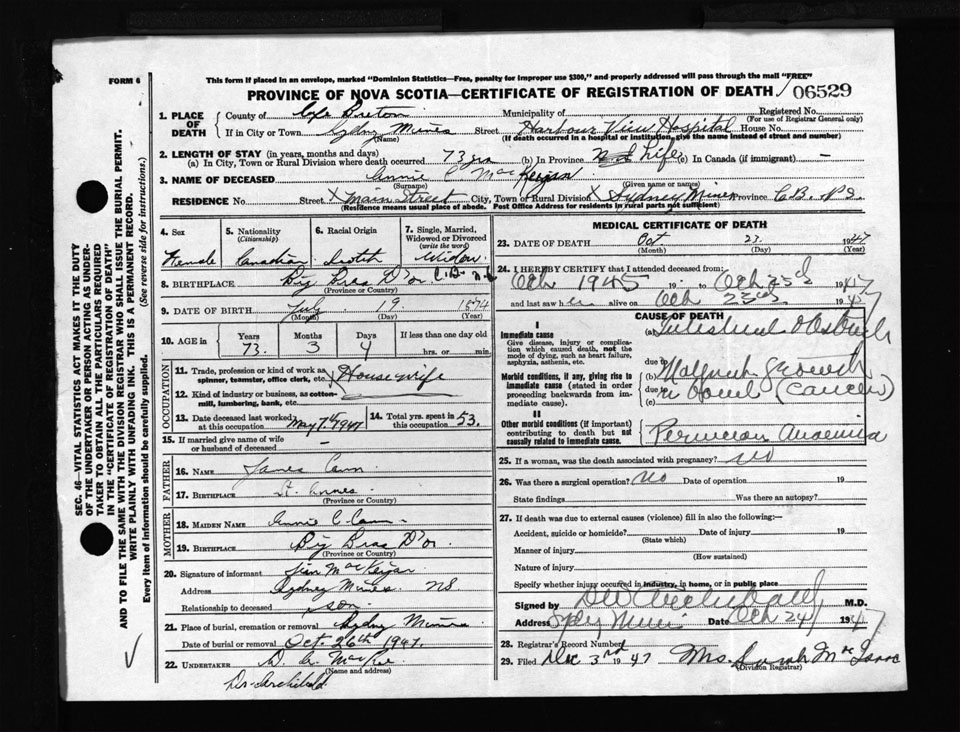 FORM 6
This form if placed in an envelope, marked "Dominion Statistics—Free, penalty for improper use $300," and properly addressed will pass through the mail "FREE"
PROVINCE OF NOVA SCOTIA—CERTIFICATE OF REGISTRATION OF DEATH 06529
SEC. 46—VITAL STATISTICS ACT MAKES IT THE DUTY
OF THE UNDERTAKER OR PERSON ACTING AS UNDERTAKER TO OBTAIN ALL THE PARTICULARS REQUIRED
IN THE "CERTIFICATE OF REGISTRATION OF DEATH"
AND TO FILE THE SAME WITH THE DIVISION REGISTRAR WHO SHALL ISSUE THE BURIAL PERMIT.
WRITE PLAINLY WITH UNFADING INK. THIS IS A PERMANENT RECORD.
Every item of information should be carefully supplied. (See reverse side for instructions.)
1. PLACE OF DEATH
County of Cape Breton Municipality of Registered No.
(For use of Registrar General only)
If in City or Town Sydney Mines Street Harbour View Hospital House No.
(Name) (If death occurred in a hospital or institution, give the name instead of street and number)
2. LENGTH OF STAY (in years, months and days)
(a) In City, Town or Rural Division where death occurred 73 yrs (b) In Province Life (c) In Canada (if immigrant) —
3. NAME OF DECEASED Annie C MacKeigan
(Surname) (Given name or names)
RESIDENCE No. Street X Main Street City, Town or Rural Division X Sydney Mines Province C.B. N.S.
(Residence means usual place of abode. Post Office Address for residents in rural parts not sufficient)
4. Sex Female
5. Nationality (Citizenship) Canadian
6. Racial Origin Scotch
7. Single, Married, Widowed or Divorced (write the word) Widow
8. BIRTHPLACE Big Bras D'or C.B. N.S.
(Province or Country)
9. DATE OF BIRTH July 19 1874
(Month) (Day) (Year)
10. AGE in Years 73 Months 3 Days 4 If less than one day old
hrs. or min.
OCCUPATION
11. Trade, profession or kind of work as spinner, teamster, office clerk, etc. Housewife
12. Kind of industry or business, as cotton-mill, lumbering, bank, etc.
13. Date deceased last worked at this occupation May 1947
14. Total yrs. spent in this occupation 53.
15. If married give name of wife or husband of deceased —
FATHER
16. NAME James Cann
17. BIRTHPLACE St. Annes
(Province or Country)
MOTHER
18. MAIDEN NAME Annie C Cann
19. BIRTHPLACE Big Bras D'or.
(Province or Country)
20. Signature of informant MacKeigan
Address Sydney Mines. NS
Relationship to deceased son.
21. Place of burial, cremation or removal Sydney Mines
Date of burial or removal Oct. 26th 1947.
22. UNDERTAKER
(Name and address)
Dr. Archibald
MEDICAL CERTIFICATE OF DEATH
23. DATE OF DEATH Oct 23 1947
(Month) (Day) (Year)
24. I HEREBY CERTIFY that I attended deceased from:
Oct 1945 19 to Oct 23rd 1947
and last saw her alive on Oct 23rd 1947
CAUSE OF DEATH
I
Immediate cause
Give disease, injury or complication which caused death, not the mode of dying, such as heart failure, asphyxia, asthenia, etc.
(a) Intestinal Obstruct
due to
Morbid conditions, if any, giving rise to immediate cause (stated in order proceeding backwards from immediate cause).
(b) Malignant growth
due to in bowel (Cancer)
(c)
II
Other morbid conditions (if important) contributing to death but not causally related to immediate cause.
Pernicious Anaemia
25. If a woman, was the death associated with pregnancy? NO
26. Was there a surgical operation? NO Date of operation 19
State findings Was there an autopsy?
27. If death was due to external causes (violence) fill in also the following:—
Accident, suicide or homicide? Date of injury 19
(State which)
Manner of injury
(How sustained)
Nature of injury
Specify whether injury occurred in industry, in home, or in public place
Signed by Archibald M.D.
Address Sydney Mines Date Oct 24 1947
28. Registrar's Record Number
29. Filed Dec 3rd 1947 Mrs. Sarah McIsaac
(Division Registrar)